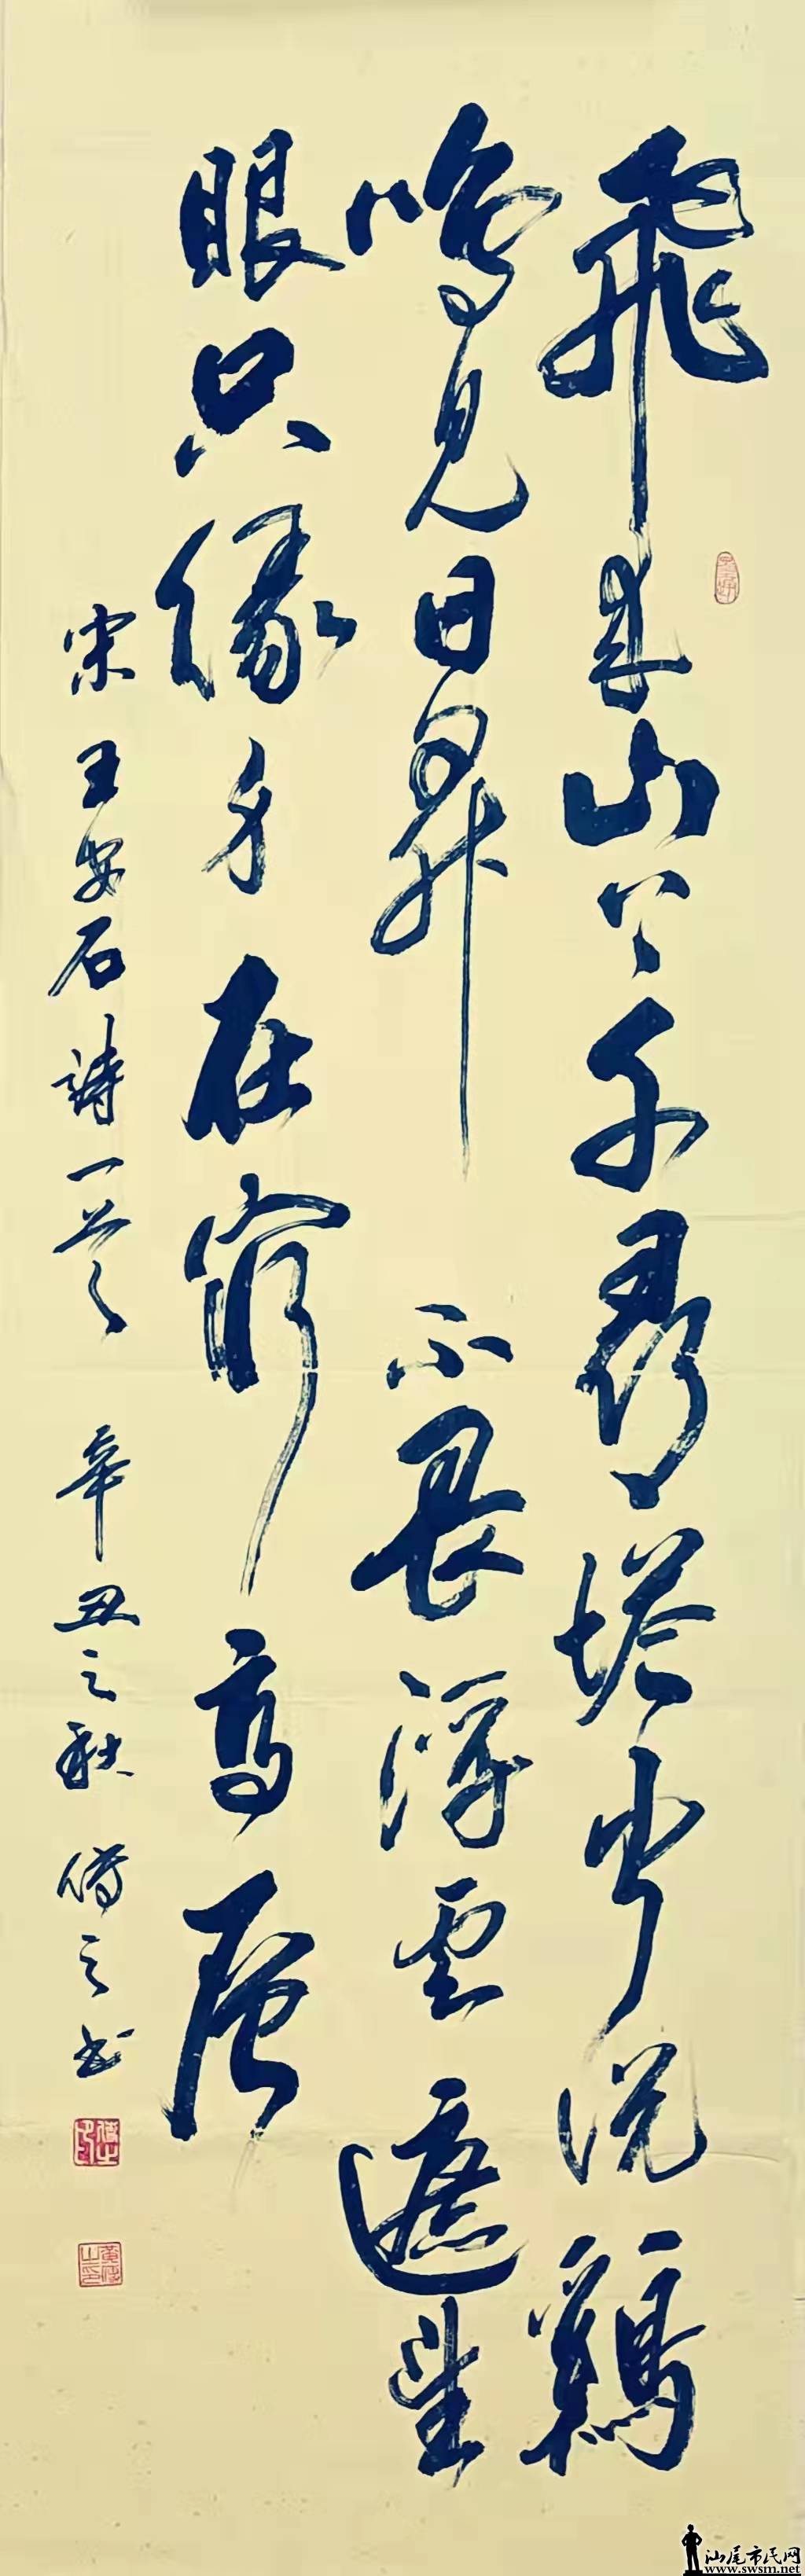 飛來山上千尋塔聞說鷄
鳴見日昇不畏浮雲遮望
眼只緣身在最高層
宋王安石詩一首 辛丑之秋 傳之書
汕尾市民网
www.swsm.net